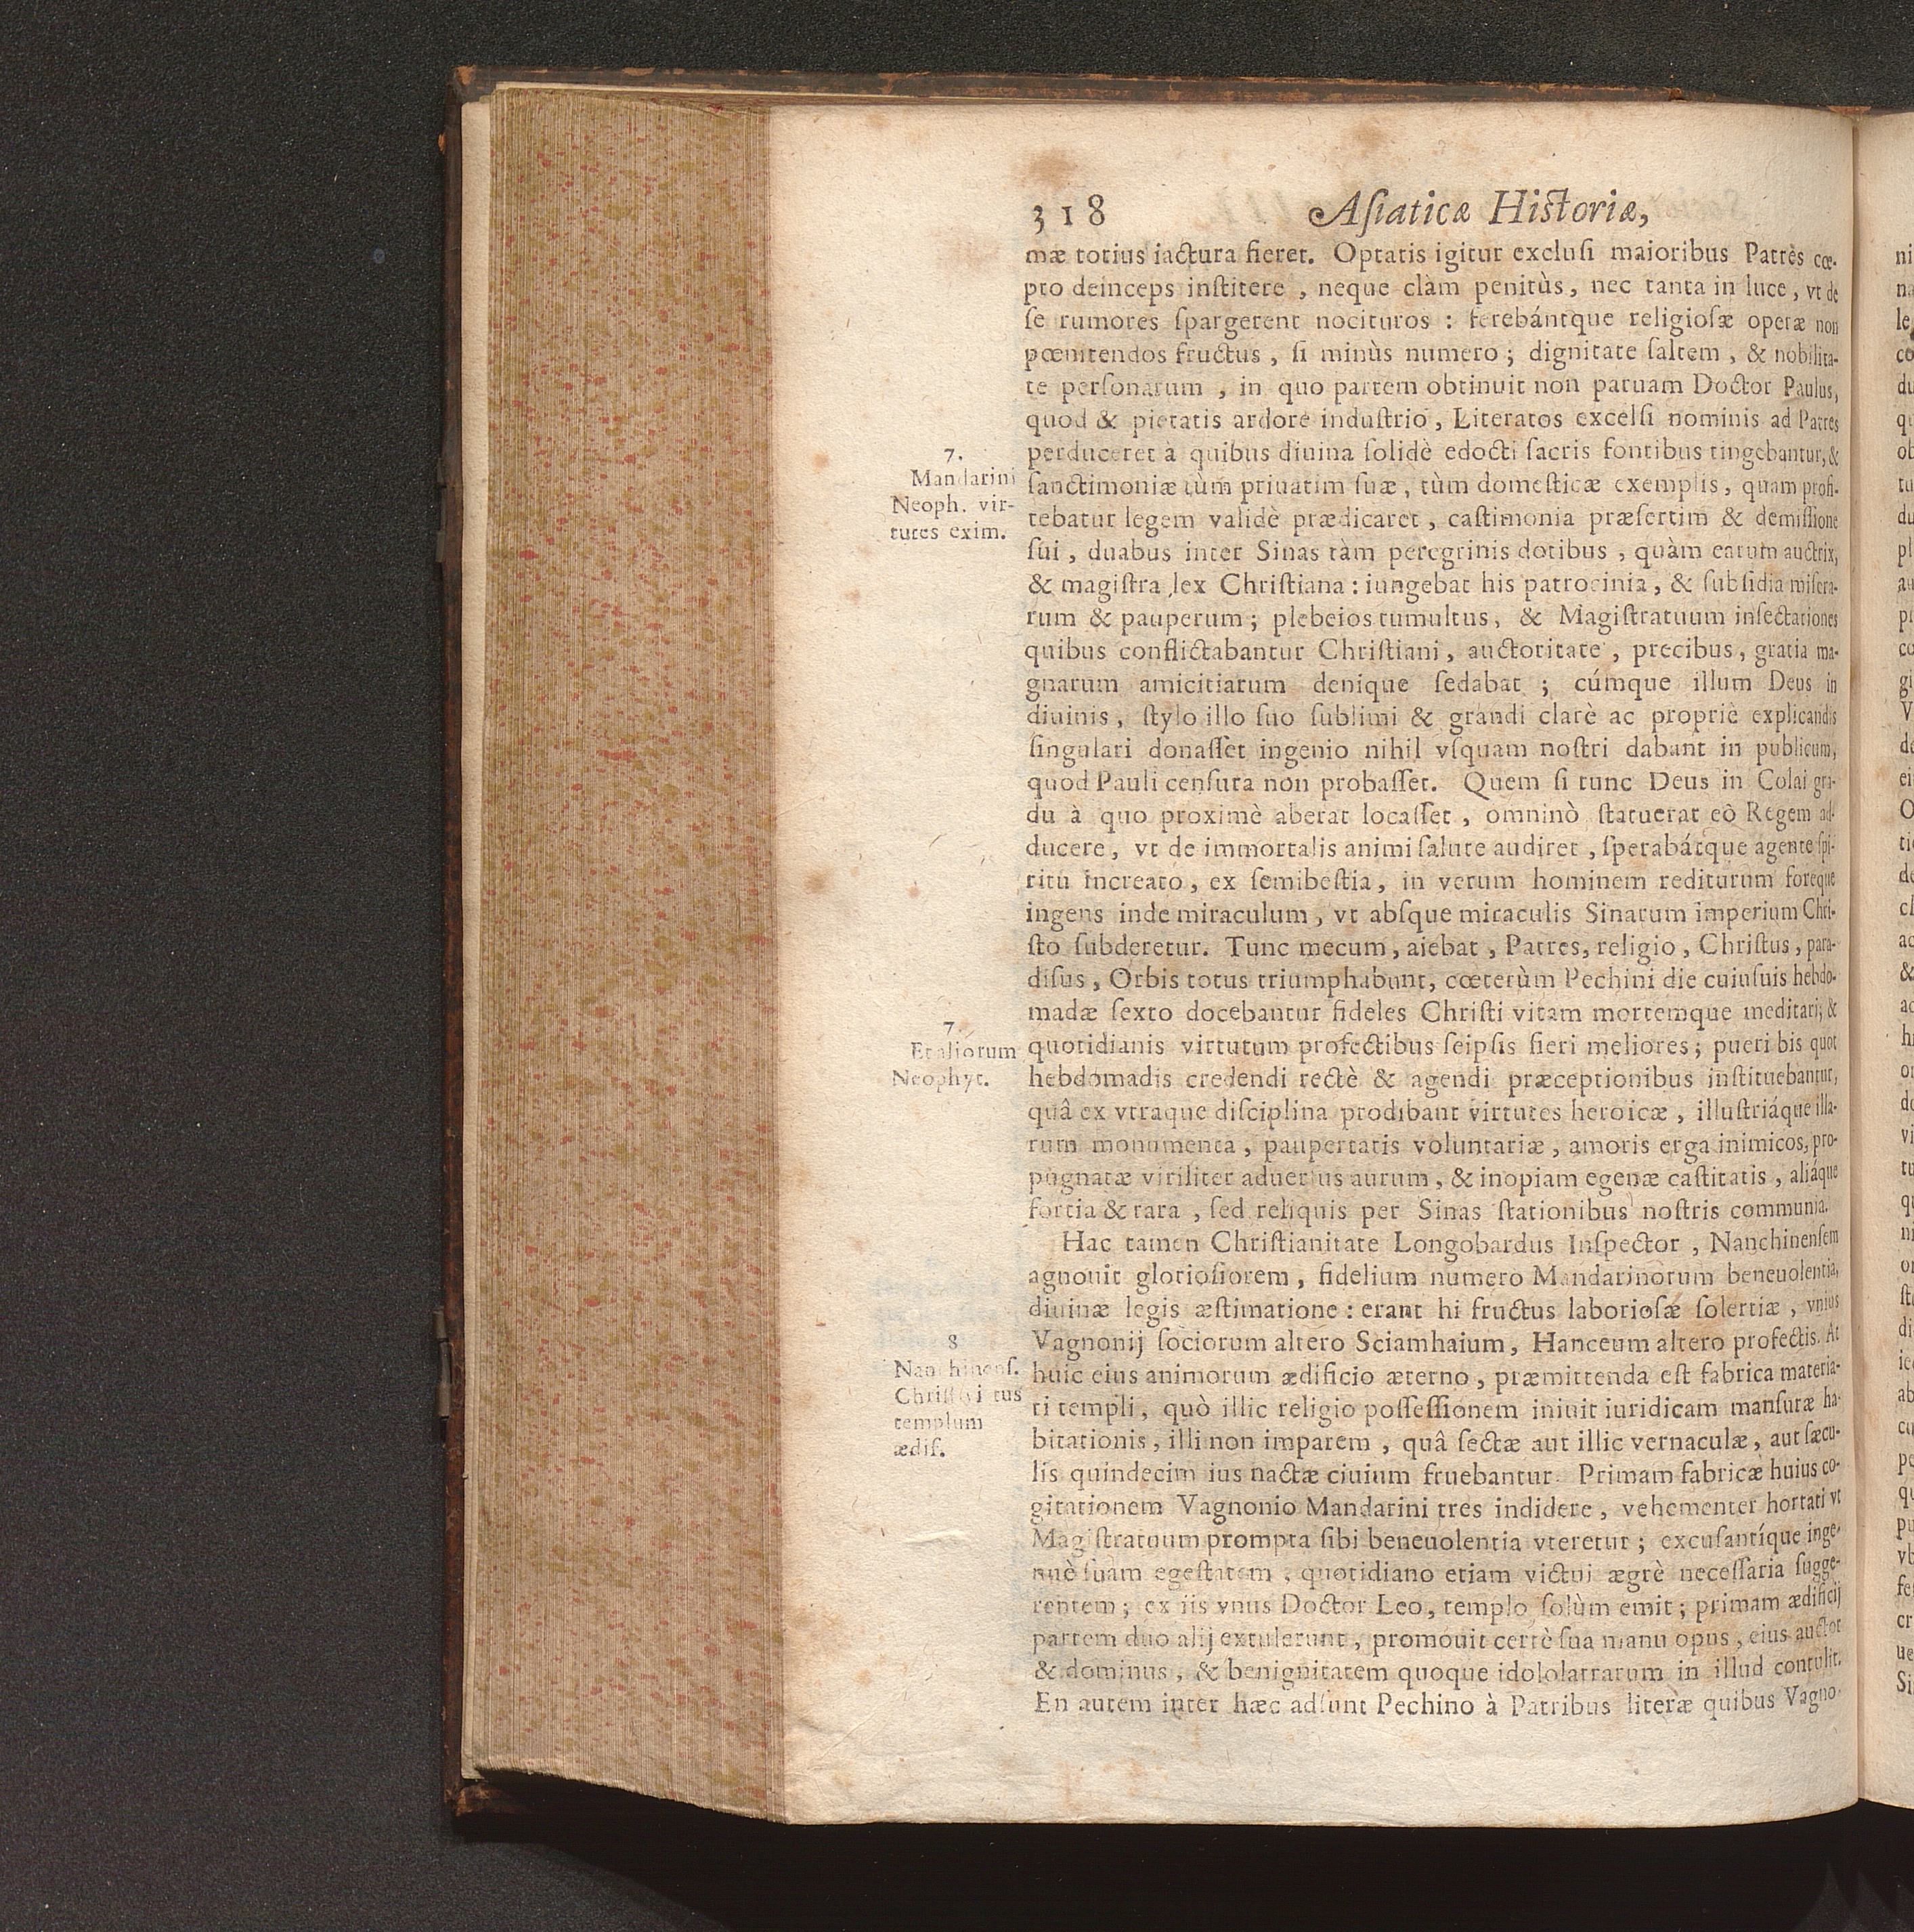 318 Aſiaticæ Hiſtoriæ,
mæ totius iactura fieret. Optatis igitur excluſi maioribus Patrès cœ-
pto deinceps inſtitere , neque clàm penitùs, nec tanta in luce, vt de
ſe rumores ſpargerent nocituros : ferebántque religioſæ operæ non
pœnitendos fructus , ſi minùs numero ; dignitate ſaltem , & nobilita-
te perſonarum , in quo partem obtinuit non paruam Doctor Paulus,
quod & pietatis ardore induſtrio, Literatos excelſi nominis ad Patres
7.
Mandarini
Neoph. vir-
tutes exim.
perduceret à quibus diuina ſolidè edocti ſacris fontibus tingebantur, &
ſanctimoniæ tùm priuatim ſuæ, tùm domeſticæ exemplis, quam profi-
tebatur legem validè prædicaret, caſtimonia præſertim & demiſſione
ſui, duabus inter Sinas tàm peregrinis dotibus, quàm earum auctrix,
& magiſtra lex Chriſtiana: iungebat his patrocinia, & ſubſidia miſera-
rum & pauperum; plebeios tumultus, & Magiſtratuum inſectationes
quibus conflictabantur Chriſtiani, auctoritate, precibus, gratia ma-
gnarum amicitiarum denique ſedabat ; cúmque illum Deus in
diuinis, ſtylo illo ſuo ſublimi & grandi clarè ac propriè explicandis
ſingulari donaſſet ingenio nihil vſquam noſtri dabant in publicum,
quod Pauli cenſura non probaſſet. Quem ſi tunc Deus in Colai gra-
du à quo proximè aberat locaſſet, omninò ſtatuerat eò Regem ad-
ducere, vt de immortalis animi ſalute audiret, ſperabátque agente ſpi-
ritu increato, ex ſemibeſtia, in verum hominem rediturum foreque
ingens inde miraculum, vt abſque miraculis Sinarum imperium Chri-
ſto ſubderetur. Tunc mecum, aiebat, Patres, religio, Chriſtus, para-
diſus, Orbis totus triumphabunt, cœterùm Pechini die cuiuſuis hebdo-
madæ ſexto docebantur fideles Chriſti vitam mortemque meditari; &
7.
Et aliorum
Neophyt.
quotidianis virtutum profectibus ſeipſis fieri meliores; pueri bis quot
hebdomadis credendi rectè & agendi præceptionibus inſtituebantur,
quâ ex vtraque diſciplina prodibant virtutes heroicæ, illuſtriáque illa-
rum monumenta, paupertatis voluntariæ, amoris erga inimicos, pro-
pugnatæ viriliter aduerſus aurum, & inopiam egenæ caſtitatis, aliáque
fortia & rara, ſed reliquis per Sinas ſtationibus noſtris communia.
Hac tamen Chriſtianitate Longobardus Inſpector, Nanchinenſem
agnouit glorioſiorem, fidelium numero Mandarinorum beneuolentia,
diuinæ legis æſtimatione: erant hi fructus laborioſæ ſolertiæ, vnius
8
Nanchinenſ.
templum
ædif.
Vagnonij ſociorum altero Sciamhaium, Hanceum altero profectis. At
huic eius animorum ædificio æterno, præmittenda eſt fabrica materia-
ti templi, quò illic religio poſſeſſionem iniuit iuridicam manſuræ ha-
bitationis, illi non imparem, quâ ſectæ aut illic vernaculæ, aut ſæcu-
lis quindecim ius nactæ ciuium fruebantur. Primam fabricæ huius co-
gitationem Vagnonio Mandarini tres indidere, vehementer hortati vt
Magiſtratuum prompta ſibi beneuolentia vteretur; excuſantíque inge-
nuè ſuam egeſtatem, quotidiano etiam victui ægrè neceſſaria ſugge-
rentem; ex iis vnus Doctor Leo, templo ſolùm emit; primam ædificij
partem duo alij extulerunt, promouit certè ſua manu opus, eius auctor
& dominus, & benignitatem quoque idololatrarum in illud contulit.
En autem inter hæc adſunt Pechino à Patribus literæ quibus Vagno-